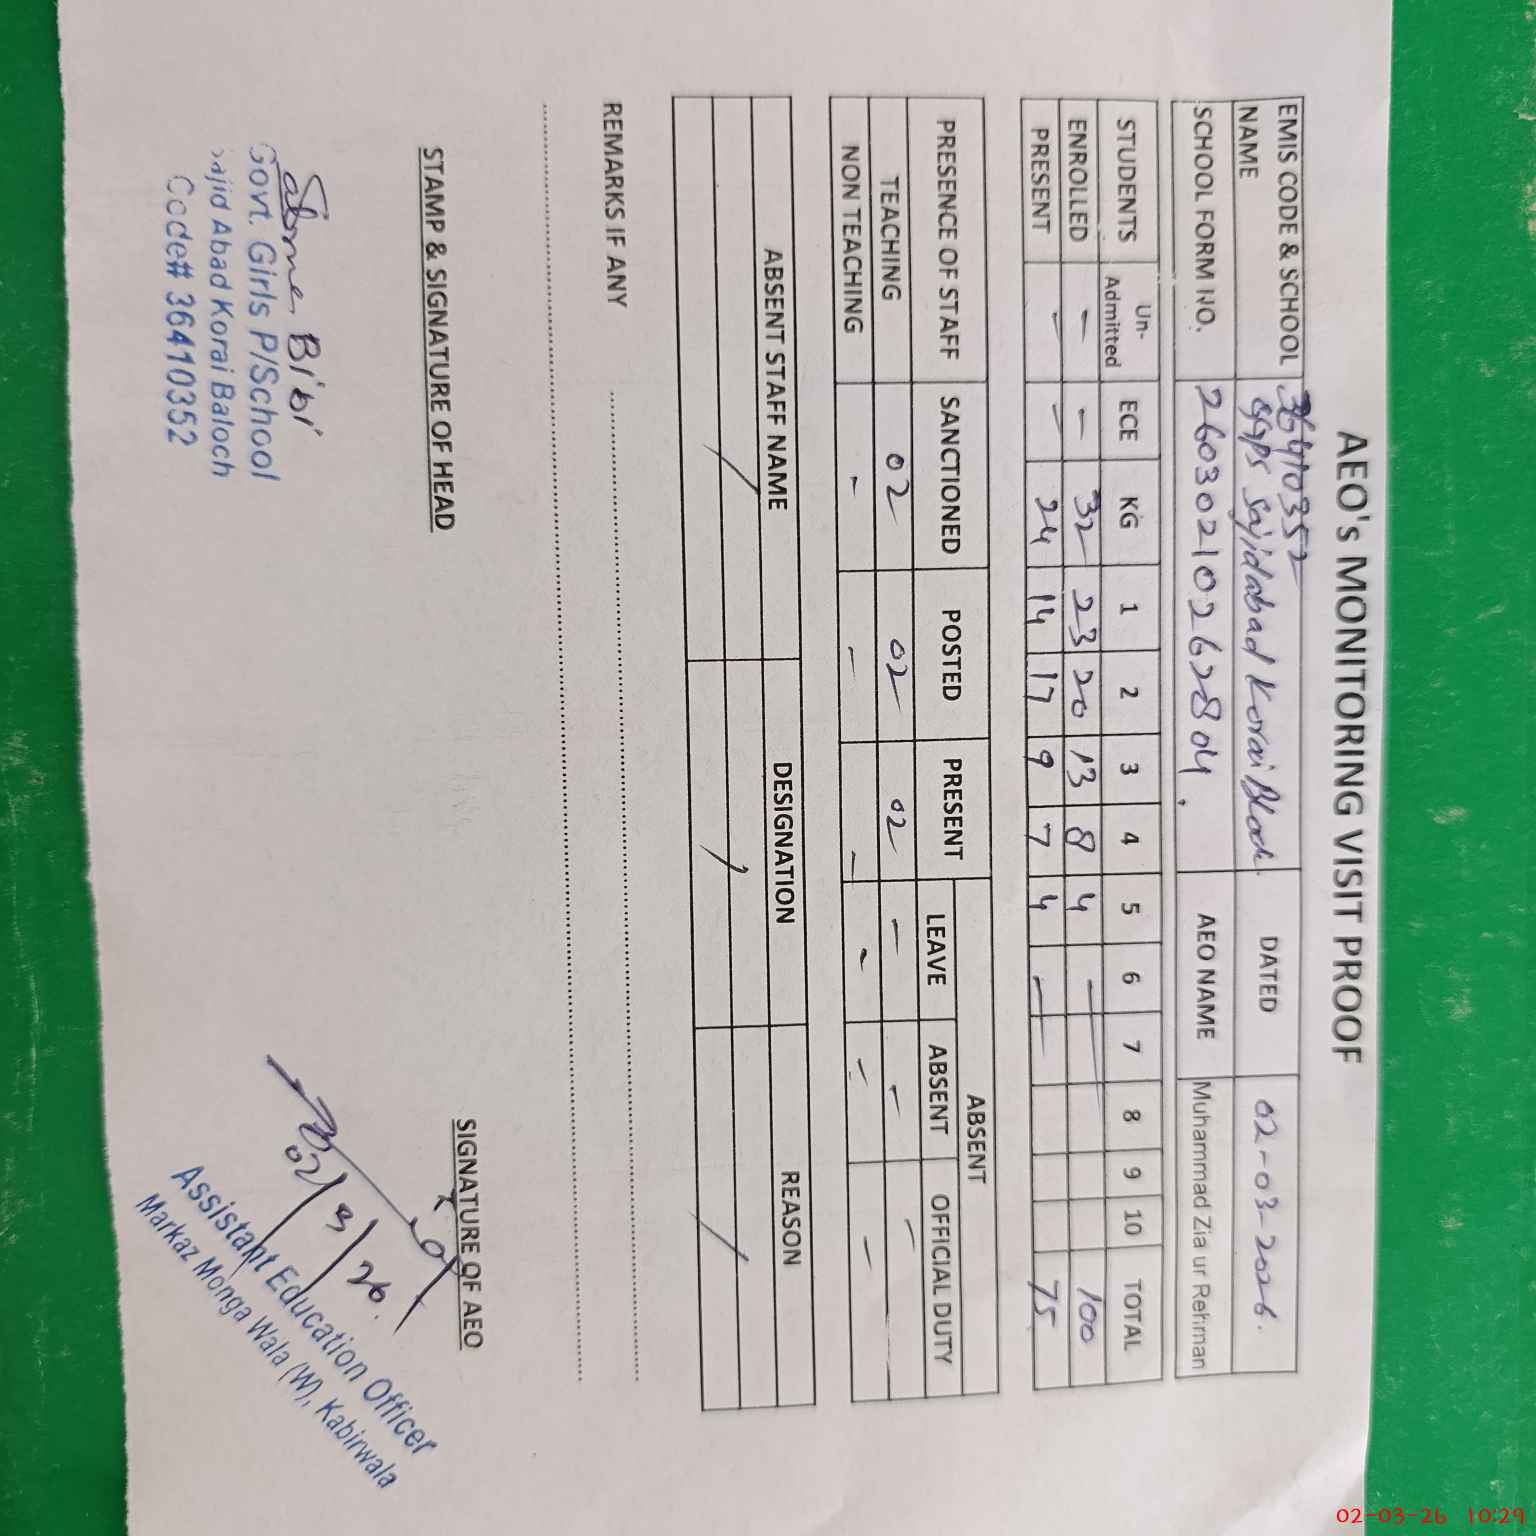 AEO's MONITORING VISIT PROOF
EMIS CODE & SCHOOL NAME 36410352 GGPS Sajidabad Korai Bloch DATED 02-03-2026.
SCHOOL FORM NO. 26030210262804. AEO NAME Muhammad Zia ur Rehman
STUDENTS Un-Admitted ECE KG 1 2 3 4 5 6 7 8 9 10 TOTAL
ENROLLED - - 32 23 20 13 8 4 — 100
PRESENT - - 24 14 17 9 7 4 — 75
PRESENCE OF STAFF SANCTIONED POSTED PRESENT ABSENT
LEAVE ABSENT OFFICIAL DUTY
TEACHING 02 02 02 - - -
NON TEACHING - - - - - -
ABSENT STAFF NAME DESIGNATION REASON
/ / /
REMARKS IF ANY ..........
..........
STAMP & SIGNATURE OF HEAD SIGNATURE OF AEO
Bibi
Govt. Girls P/School
Sajid Abad Korai Baloch
Code# 36410352
02/3/26.
Assistant Education Officer
Markaz Monga Wala (W), Kabirwala
02-03-26 10:29